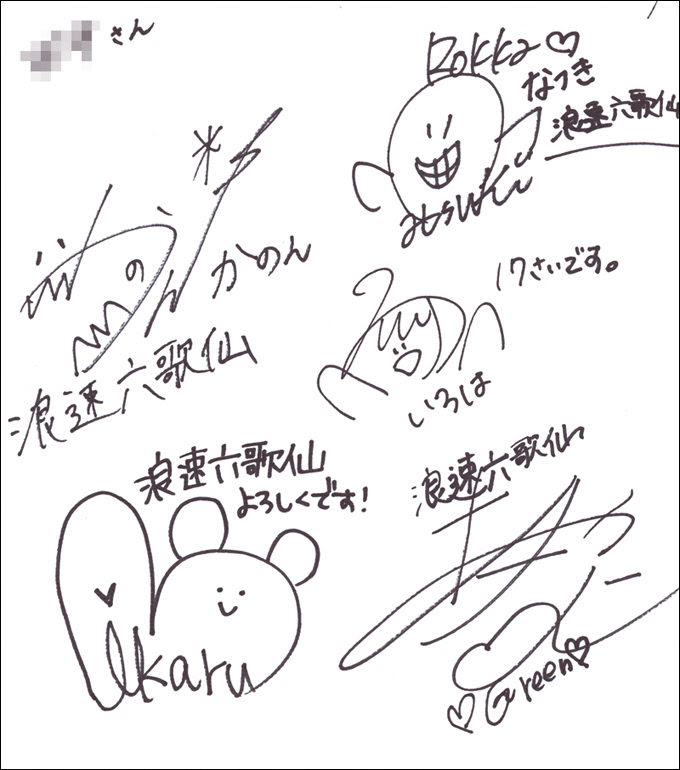 さん
Rokka♡
なつき
浪速六歌仙
かのん
浪速六歌仙
17さいです。
いろは
浪速六歌仙
よろしくです!
Ikaru
浪速六歌仙
♡Green♡